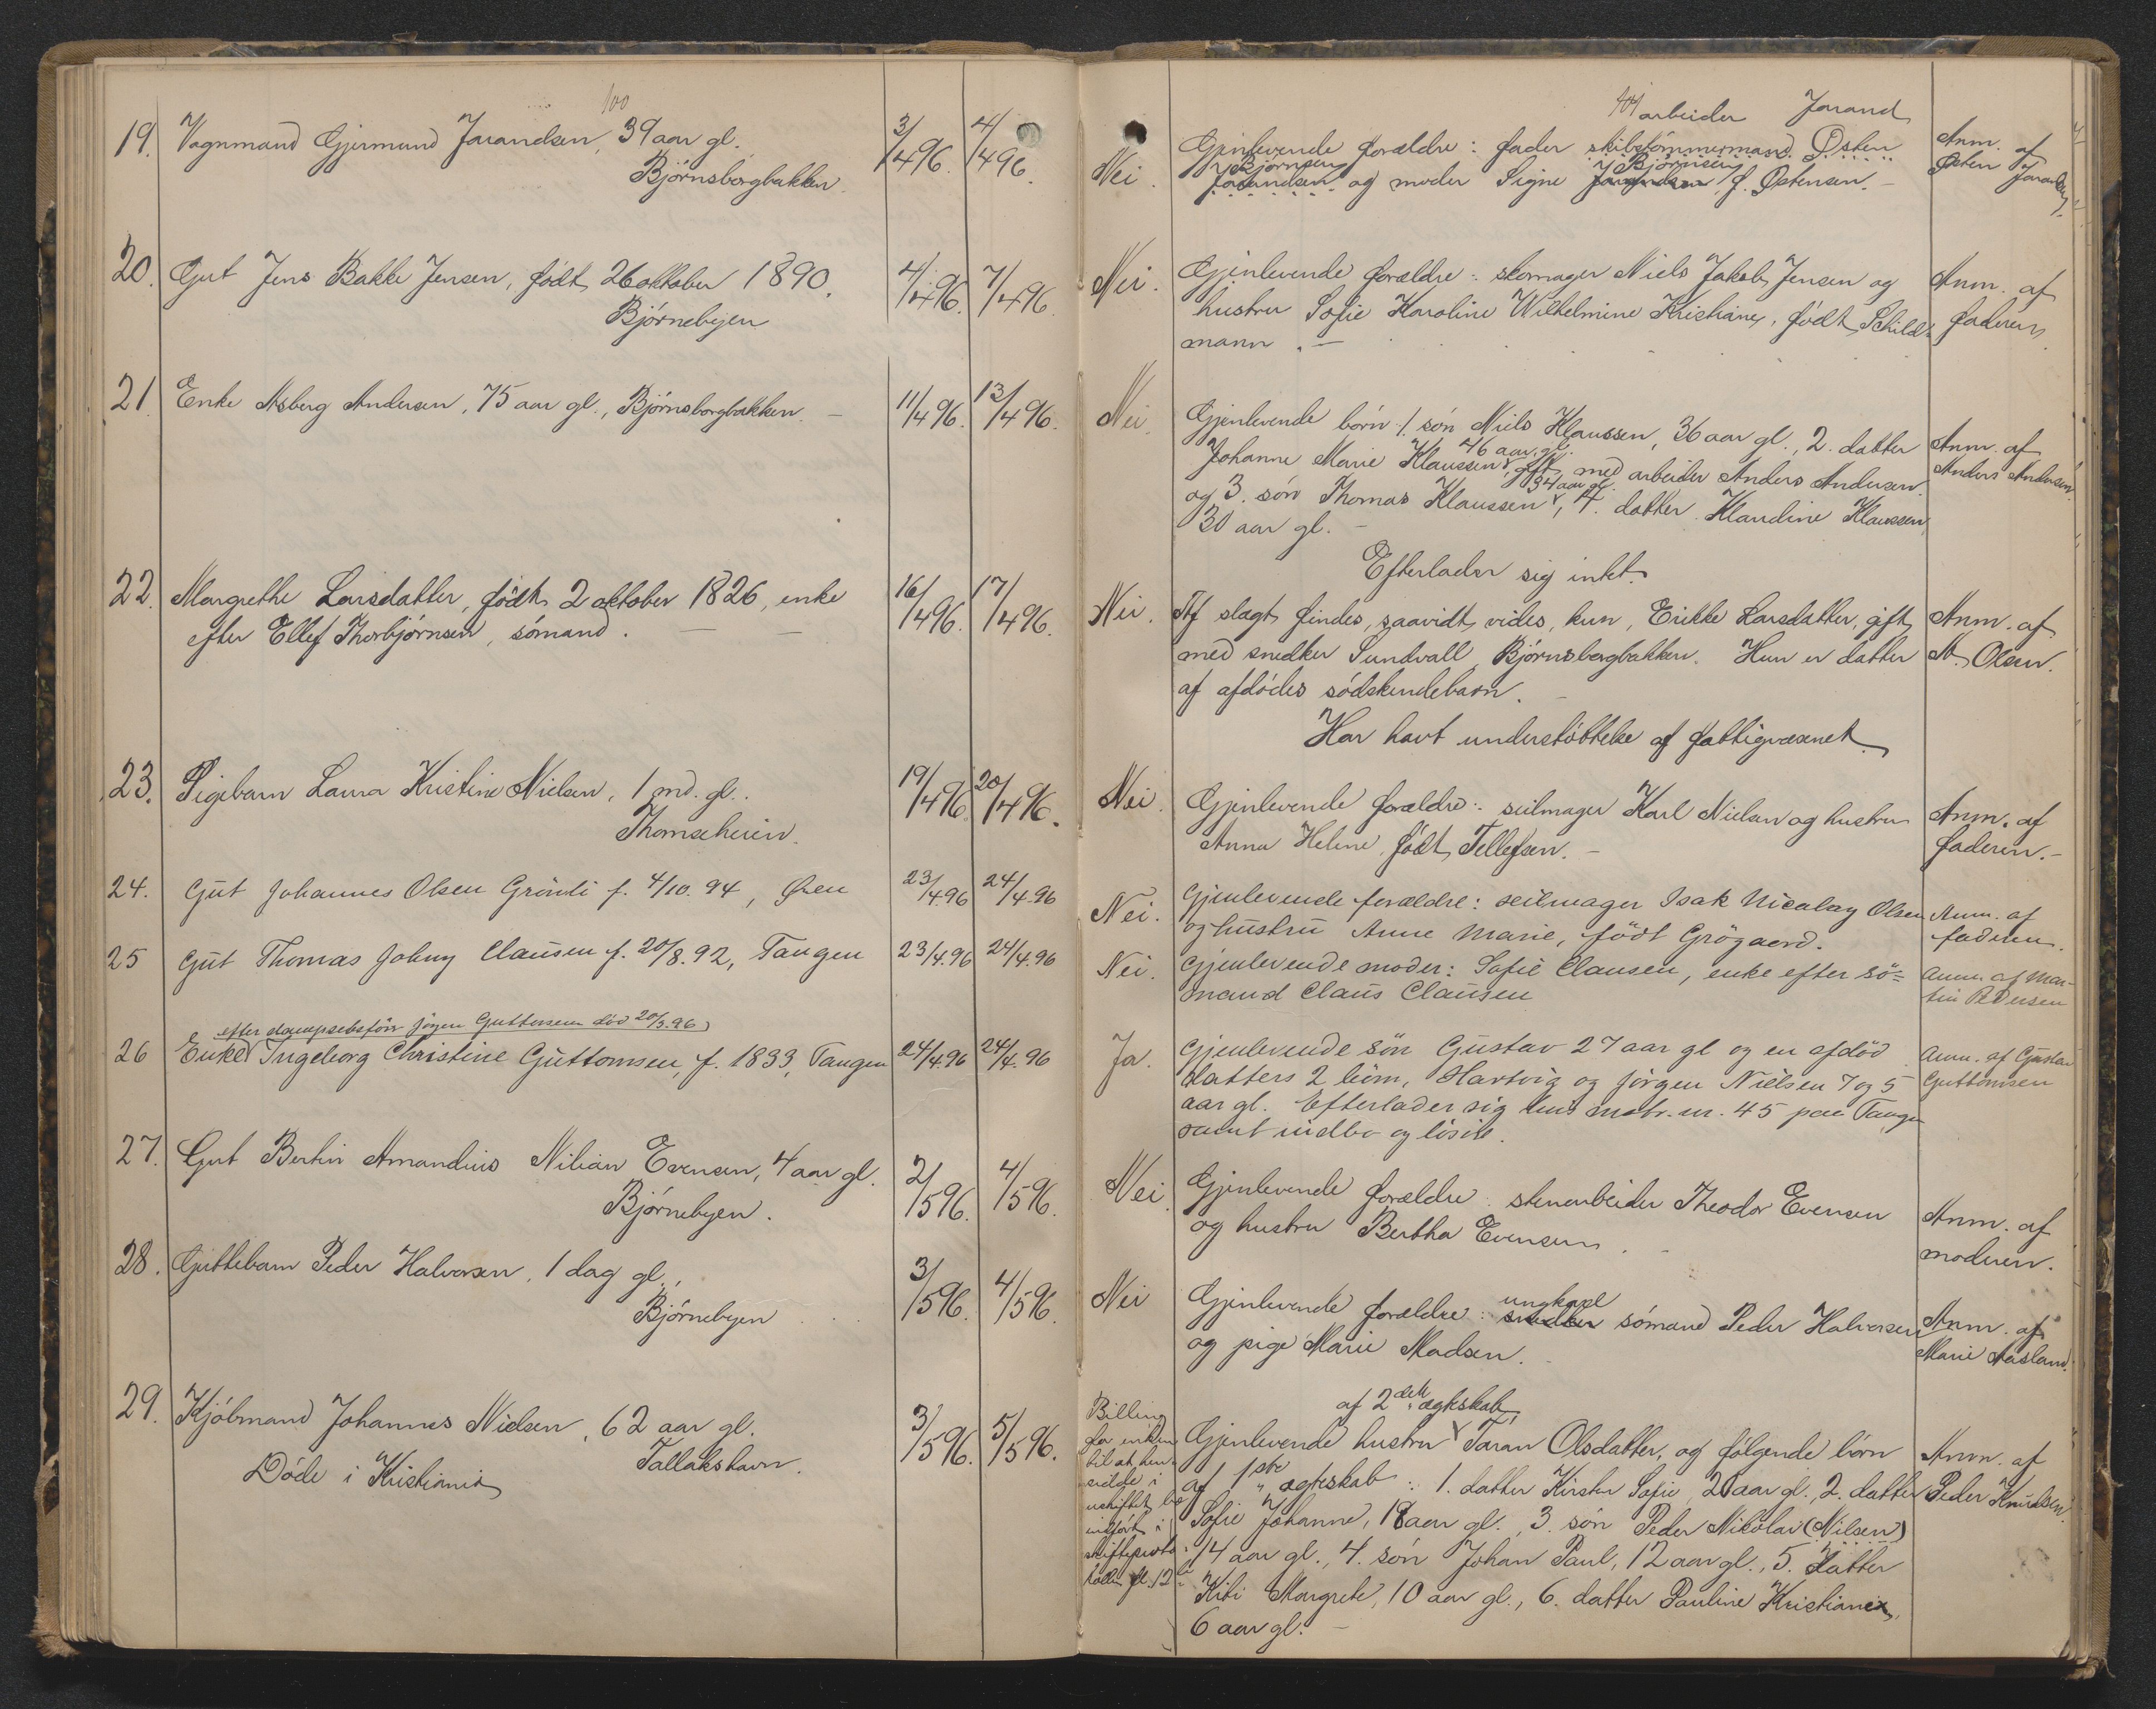 100
19. Vognmand Gjermund Jarandsen, 39 aar gl. 3/4 96. 4/4 96.
Bjørnsborgbakken.
20. Gut Jens Bakke Jensen, født 26 oktober 1890. 4/4 96. 7/4 96.
Bjørnebyen
21. Enke Asberg Andersen, 75 aar gl., Bjørnsborgbakken. – 11/4 96. 13/4 96.
22. Margrethe Larsdatter, født 2 oktober 1826, enke 16/4 96. 17/4 96.
efter Ellef Thorbjørnsen, sømand. — —
23. Pigebarn Laura Kristine Nielsen, 1 md. gl. 19/4 96. 20/4 96.
Thomseheien.
24. Gut Johannes Olsen Grönli f. 4/10. 94, Øen 23/4.96 24/4.96
25 Gut Thomas Johny Clausen f. 20/8. 92, Tangen 23/4.96 24/4.96
efter dampskibsförer Jörgen Guttormsen död 20/3.96
26 Enke Ingeborg Christine Guttomsen, f. 1833, Tangen 24/4.96 24/4.96
27. Gut Bertin Amandius Nilian Evensen, 4 aar gl. 2/5 96. 4/5 96.
Bjørnebyen.
28. Guttebarn Peder Halvorsen, 1 dag gl., 3/5 96. 4/5 96.
Bjørnebyen
29. Kjøbmand Johannes Nielsen, 62 aar gl. 3/5 96. 5/5 96.
Tallakshavn.
Døde i Kristiania
101
arbeider Jarand
Nei. Gjenlevende forældre: fader skibstømmermand Østen Anm. af
Bjørnsen Bjørnsen
Jarandsen og moder Signe Jarandsen f. Østensen. – Østen Jarandsen.
Nei. Gjenlevende forældre: skomager Niels Jakob Jensen og Anm. af
hustru Sofie Karoline Wilhelmine Kristiane, født Schild= faderen.
mann. –
Nei. Gjenlevende børn 1. søn Niels Klaussen, 36 aar gl., 2. datter Anm. af
46 aar gl.
Johanne Marie Klaussen, gift med arbeider Anders Andersen. Anders Andersen.
34 aar gl.
og 3. søn Thomas Klaussen, 4. datter Klaudine Klaussen,
30 aar gl. –
Efterlader sig intet.
Nei. Af slægt findes, saavidt vides, kun, Erikke Larsdatter, gift Anm. af
med snedker Sundvall, Bjørnsborgbakken. Hun er datter M. Olsen.
af afdødes sødskendebarn. –
Har havt understøttelse af fattigvæsenet.
Nei. Gjenlevende forældre: seilmager Karl Nielsen og hustru Anm. af
Anna Helene, født Tellefsen. – faderen. –
Nei. Gjenlevende forældre: seilmager Isak Nicolay Olsen Anm. af
og hustru Anne Marie, födt Grögaard. faderen.
Nei. Gjenlevende moder: Sofie Clausen, enke efter sö= Anm. af Mar-
mand Claus Clausen tin Pedersen
Ja. Gjenlevende sön Gustav 27 aar gl og en afdöd Anm. af Gustav
datters 2 börn, Hartvig og Jörgen Nielsen 7 og 5 Guttomsen
aar gl. Efterlader sig hus matr. nr. 45 paa Tangen
samt indbo og lösöre.
Nei. Gjenlevende forældre: stenarbeider Theodor Evensen Anm. af
og hustru Bertha Evensen. – moderen.
ungkarl
Nei Gjenlevende forældre: snedker sømand Peder Halvorsen Anm. af
og pige Marie Madsen. – Marie Aasland.
af 2det ægteskab
Gjenlevende hustru Taran Olsdatter, og følgende børn Anm. af
af 1ste ægteskab: 1. datter Kirsten Sofie, 20 aar gl., 2. datter Peder Knudsen.
Sofie Johanne, 18 aar gl., 3. søn Peder Nikolai (Nilsen)
14 aar gl., 4. søn Johan Paul, 12 aar gl., 5. datter
Kiti Margrete, 10 aar gl., 6. datter Pauline Kristiane,
6 aar gl. –
Billing
for enken
til at hen=
sidde i
uskiftet bo
indført i
skifteproto=
kollen fol. 12